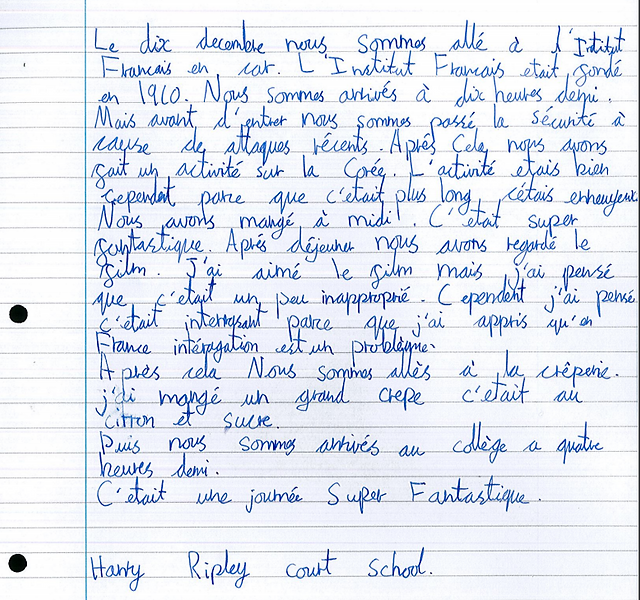 Le dix decembre nous sommes allé à l'Institut
Francais en car. L'Institut Francais etait fondé
en 1910. Nous sommes arrivés à dix heures demi.
Mais avant d'entrer nous sommes passé la sécurité à
cause de attaques récents. Après Cela nous avons
fait un activité sur la Corée. L'activité etais bien
cependant parce que c'etait plus long, cétais ennuyeux.
Nous avons mangé à midi. C'était super
fantastique. Après déjeuner nous avons regardé le
film. J'ai aimé le film mais j'ai pensé
que c'était un peu inapproprié. Cependent j'ai pensé
c'etait interrysant parce que j'ai appris qu'en
France intéragation est un problèque.
Après cela Nous sommes allès à la crêperie.
j'ai mangé un grand crepe c'etait au
citron et sucre.
Puis nous sommes arrivés au collège a quatre
heures demi.
C'était une journée Super Fantastique.
Harry Ripley court school.